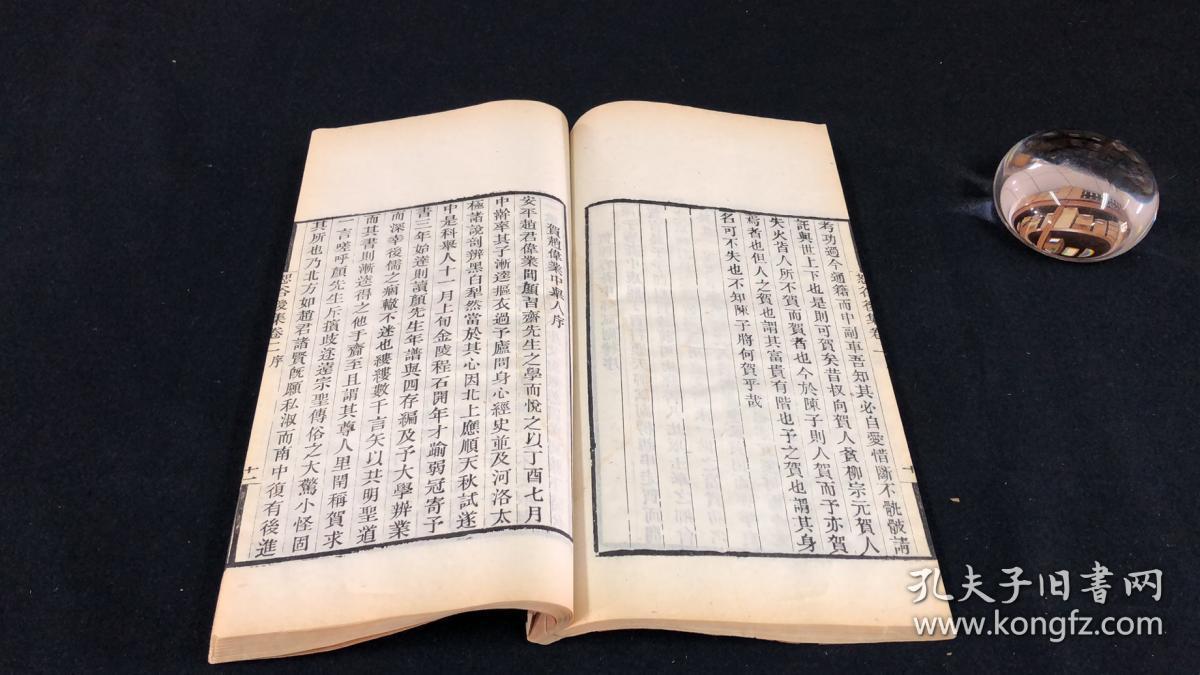 考功過今通籍而中副車吾知其必自愛惜斷不骫骳請
託與世上下也是則可賀矣昔叔向賀人貧柳宗元賀人
失火皆人所不賀而賀者也今於陳子則人賀而予亦賀
焉者也但人之賀也謂其富貴有階也予之賀也謂其身
名可不失也不知陳子將何賀乎哉
恕谷後集卷一
賀趙偉業中舉人序
安平趙君偉業聞顏習齋先生之學而悅之以丁酉七月
中幹率其子漸逵摳衣過予廬問身心經史並及河洛太
極諸說剖辨黑白犁然當於其心因北上應順天秋試遂
中是科舉人十一月上旬金陵程石開年才踰弱冠寄予
書三年始達則讀顏先生年譜與四存編及予大學辨業
而深幸後儒之痼轍不迷也縷縷數千言矢以共明聖道
而其書則漸逵得之他手齋至且謂其尊人里閈稱賀求
一言嗟呼顏先生斥擯歧途遠宗聖傳俗之大驚小怪固
其所也乃北方如趙君諸賢既願私淑而南中復有後進
恕谷後集卷一 序
十一
孔夫子旧书网
www.kongfz.com